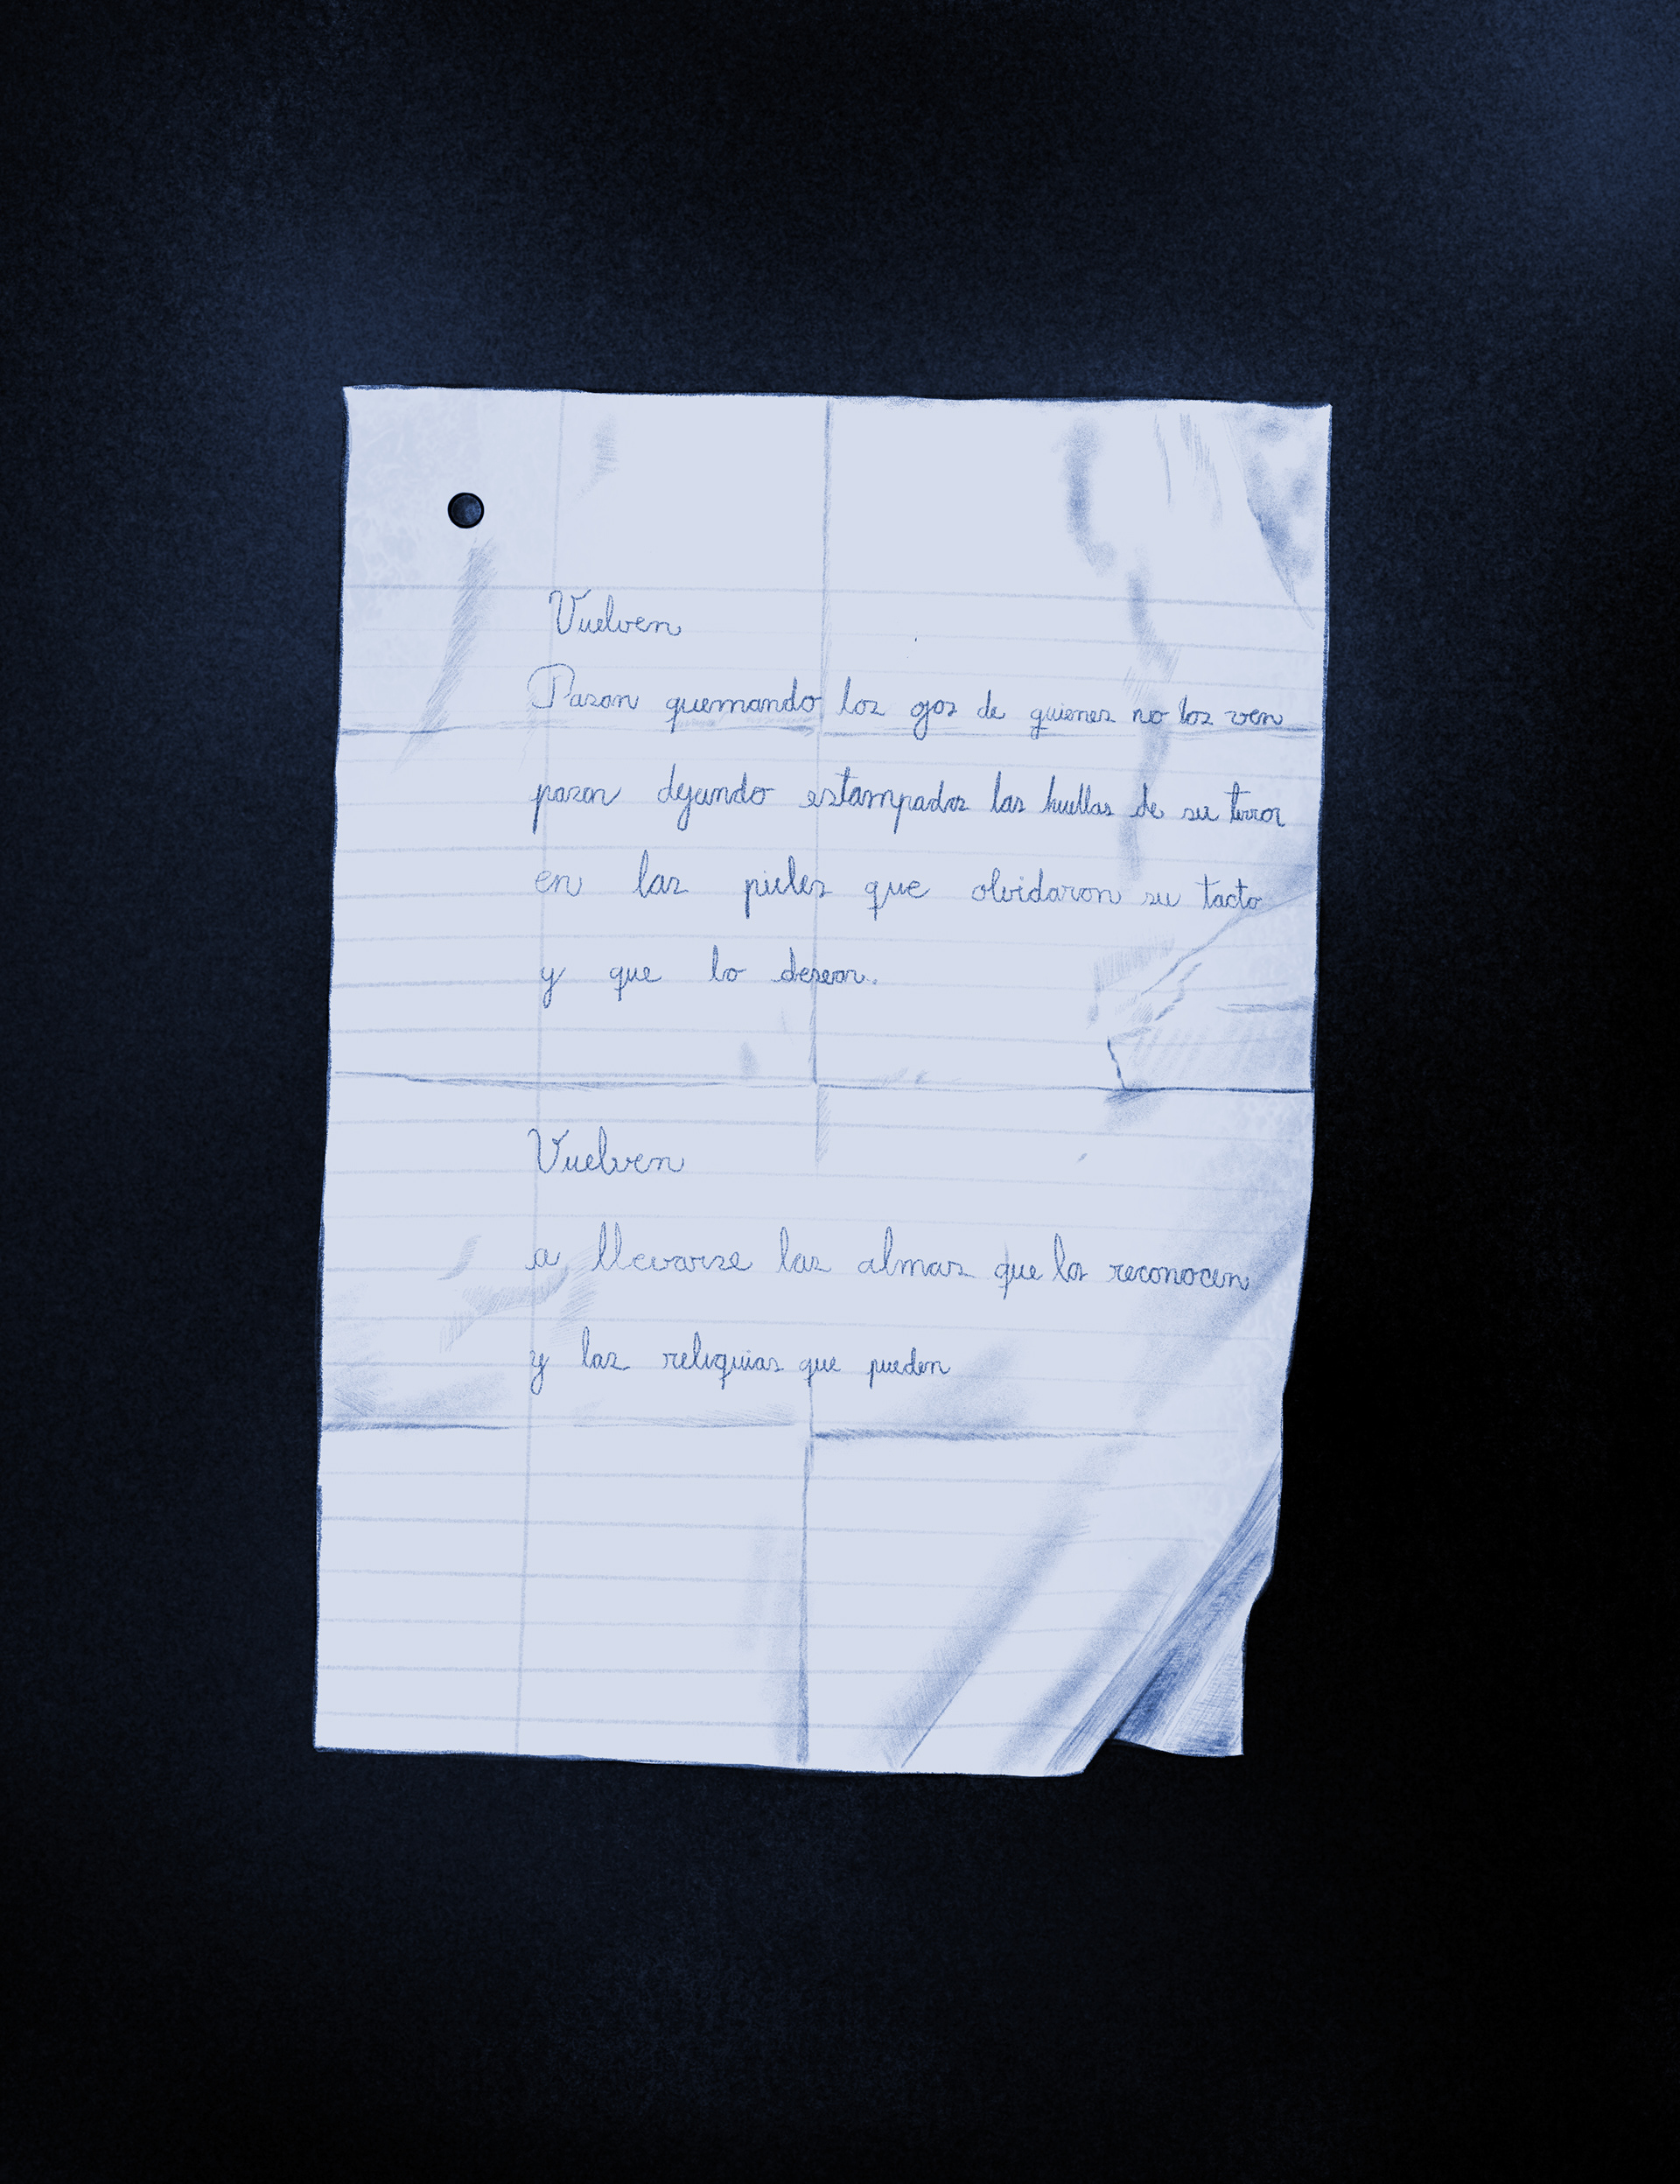 Vuelven
Pasan quemando los ojos de quienes no los ven
pasan dejando estampados las huellas de su terror
en las pieles que olvidaron su tacto
y que lo desean.
Vuelven
a llevarse las almas que los reconocen
y las reliquias que pueden